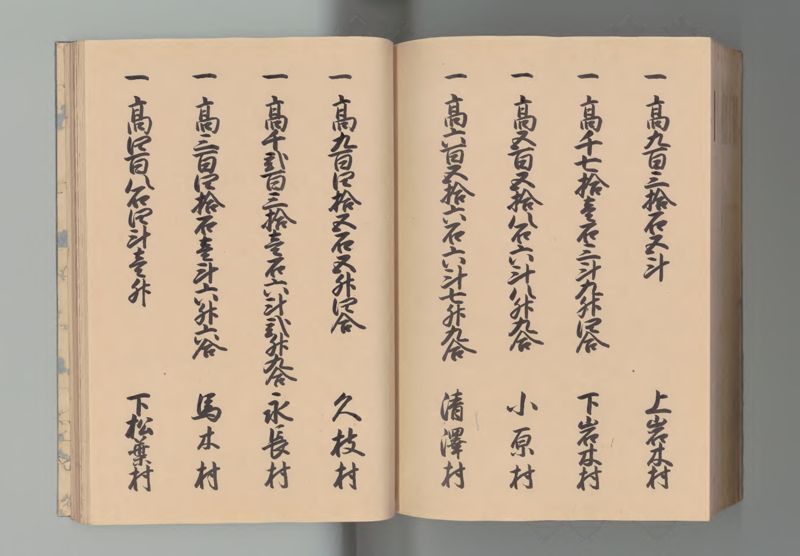 一 高九百三拾石五斗 上岩木村
一 高千七拾壱石三斗九升四合 下岩木村
一 高五百五拾八石六斗八升九合 小原村
一 高六百五拾六石六斗七升九合 清澤村
一 高九百四拾五石五升四合 久枝村
一 高千弐百三拾壱石六斗弐升九合 永長村
一 高三百四拾石壱斗六升六合 馬木村
一 高四百八石四斗壱升 下松葉村